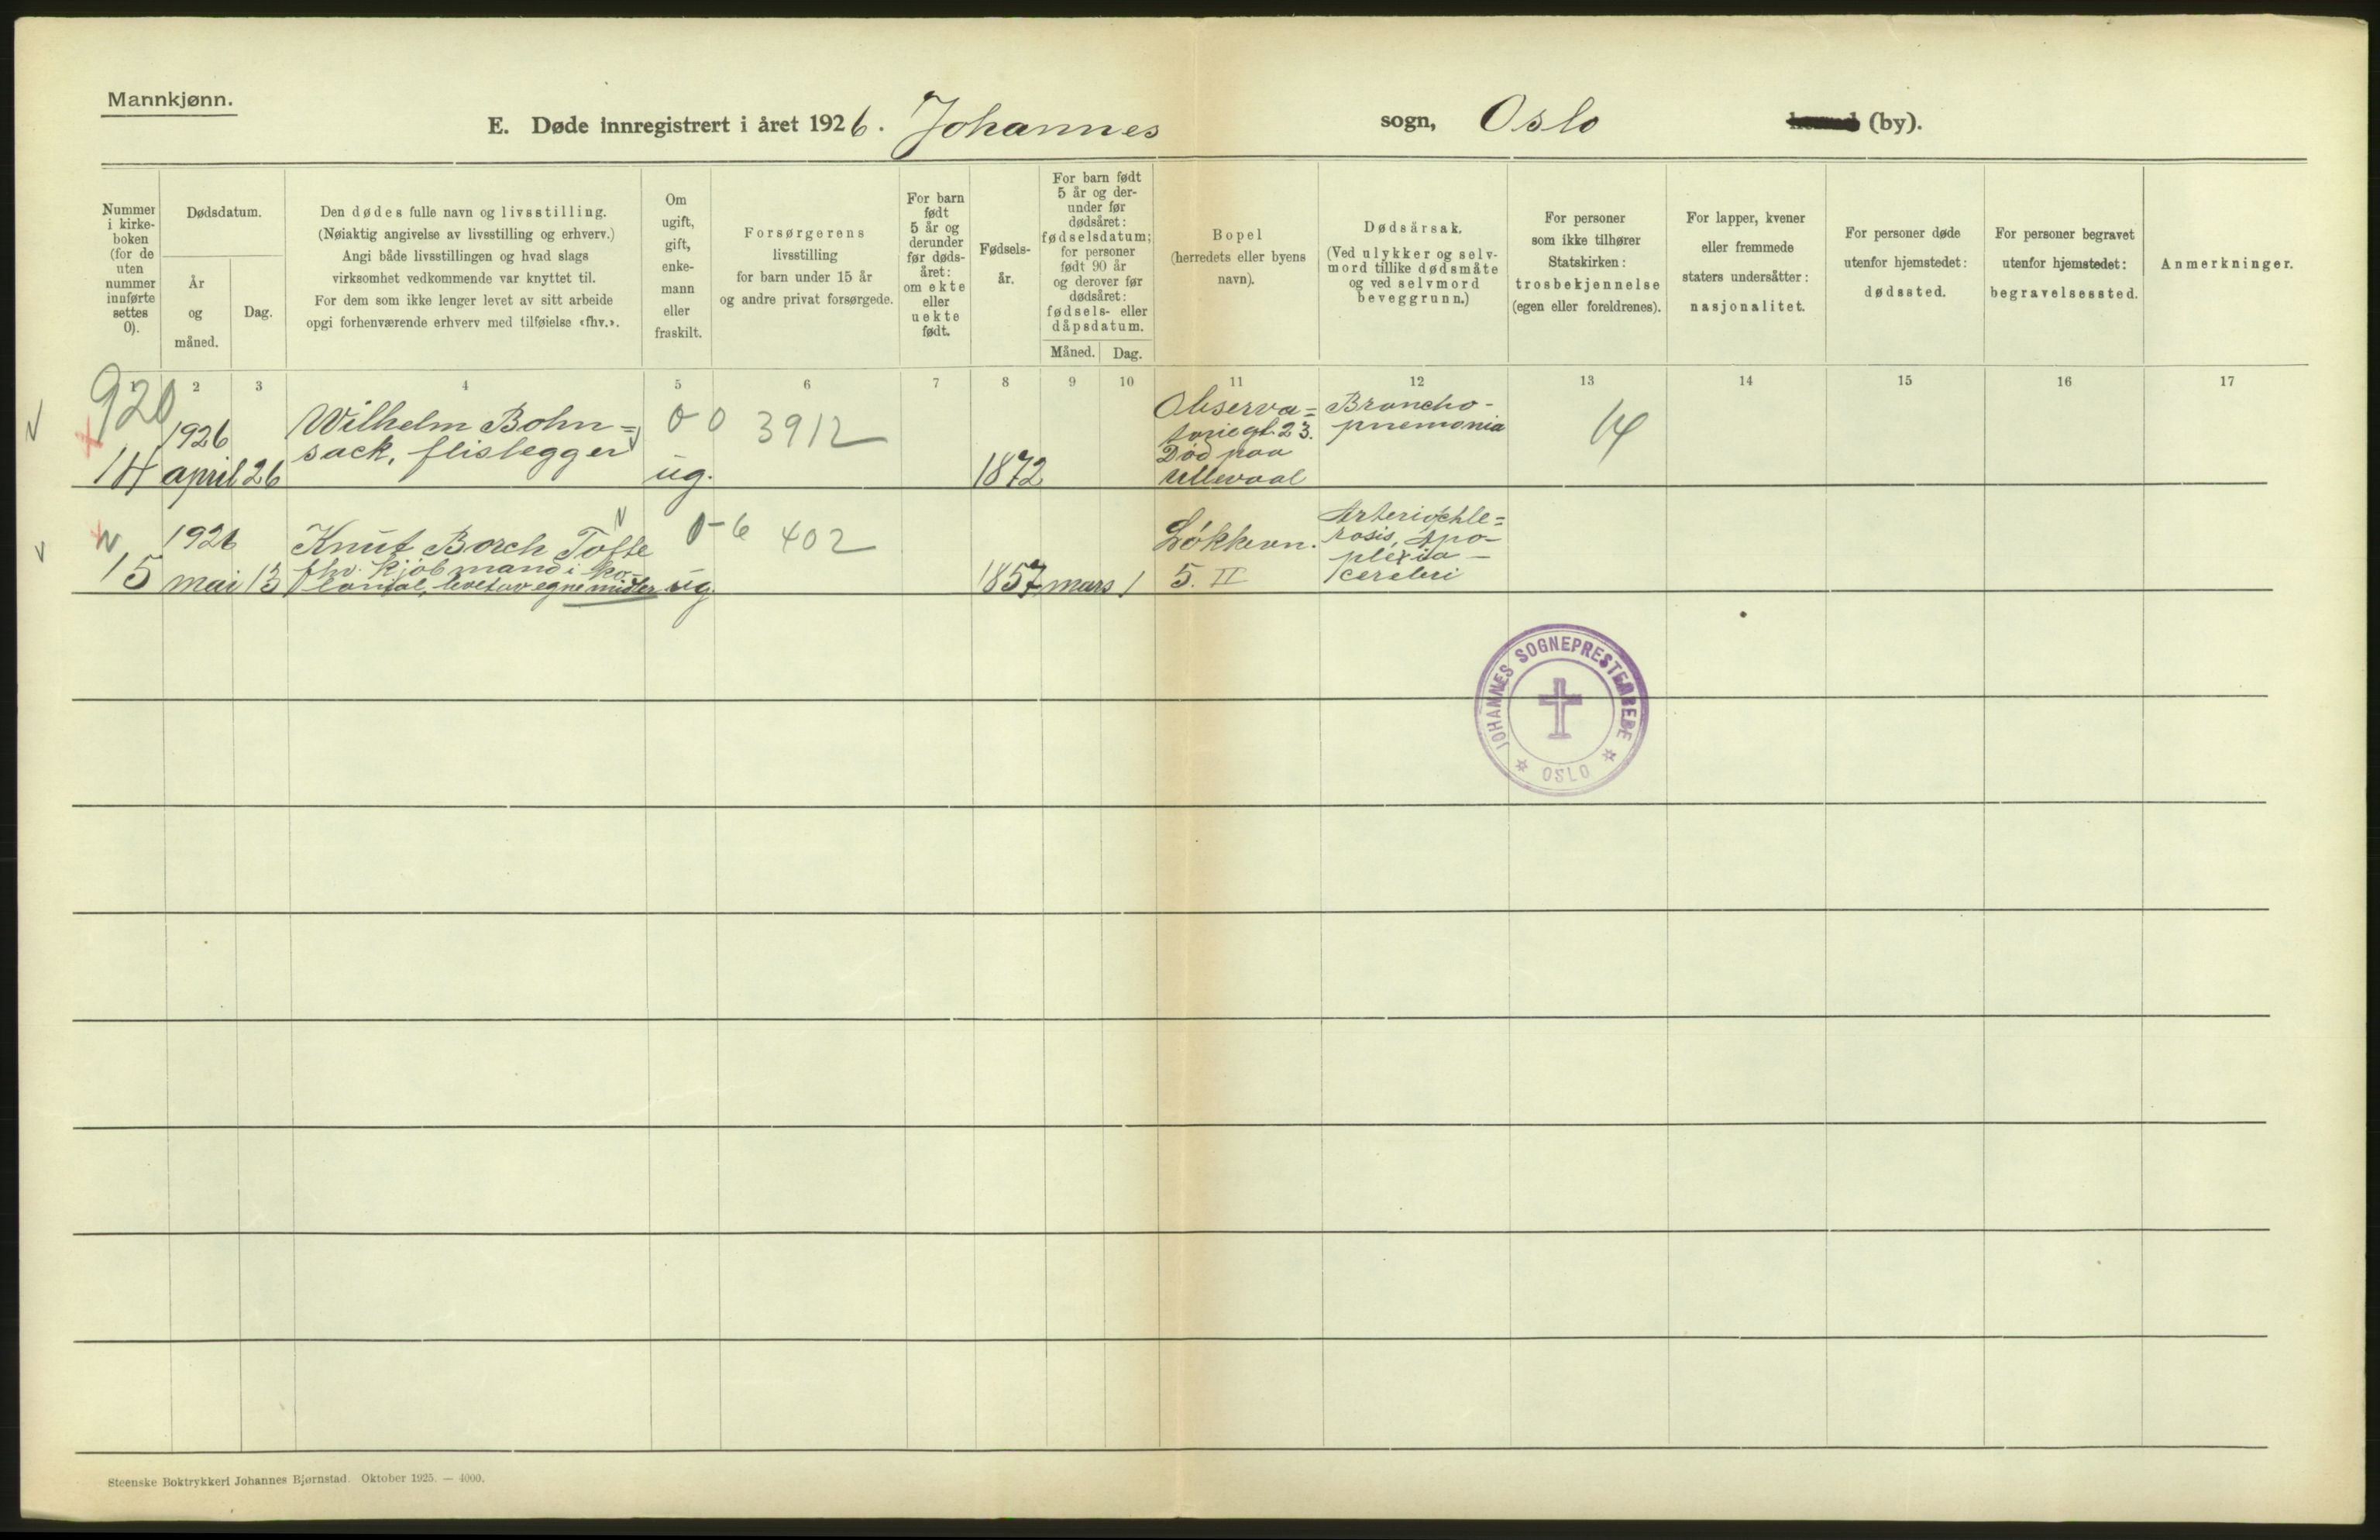 Mannkjønn.
E. Døde innregistrert i året 1926. Johannes sogn, Oslo (by).
Nummer i kirke-boken (for de uten nummer innførte settes 0).
Dødsdatum.
År og måned.
Dag.
Den dødes fulle navn og livsstilling.
(Nøiaktig angivelse av livsstilling og erhverv.)
Angi både livsstillingen og hvad slags
virksomhet vedkommende var knyttet til.
For dem som ikke lenger levet av sitt arbeide
opgi forhenværende erhverv med tilføielse «fhv.».
Om ugift, gift, enke-mann eller fraskilt.
Forsørgerens
livsstilling
for barn under 15 år
og andre privat forsørgede.
For barn født 5 år og derunder før døds-året: om ekte eller uekte født.
Fødsels-år.
For barn født
5 år og der-
under før
dødsåret:
fødselsdatum;
for personer
født 90 år
og derover før
dødsåret:
fødsels- eller
dåpsdatum.
Måned. Dag.
Bopel
(herredets eller byens
navn).
Dødsårsak.
(Ved ulykker og selv-
mord tillike dødsmåte
og ved selvmord
beveggrunn.)
For personer
som ikke tilhører
Statskirken:
trosbekjennelse
(egen eller foreldrenes).
For lapper, kvener
eller fremmede
staters undersåtter:
nasjonalitet.
For personer døde
utenfor hjemstedet:
dødssted.
For personer begravet
utenfor hjemstedet:
begravelsessted.
Anmerkninger.
1 2 3 4 5 6 7 8 9 10 11 12 13 14 15 16 17
920
14
1926
april 26
Wilhelm Bohn=
sack, flislegger
0 0
ug.
3912
1872
Observa=
toriegt. 23.
Död paa
Ullevaal
Broncho-
pnemonia
15
1926
mai 13
Knut Borch Tofte
fhv. kjöbmand i ko-
lonial, levet av egne midler
0-6
ug.
402
1857 mars 1
Lökkevn.
5. II
Arterioskle=
rosis, Apo-
plexia
cerebri
JOHANNES SOGNEPRESTEMBEDE
OSLO
Steenske Boktrykkeri Johannes Bjørnstad. Oktober 1925. — 4000.